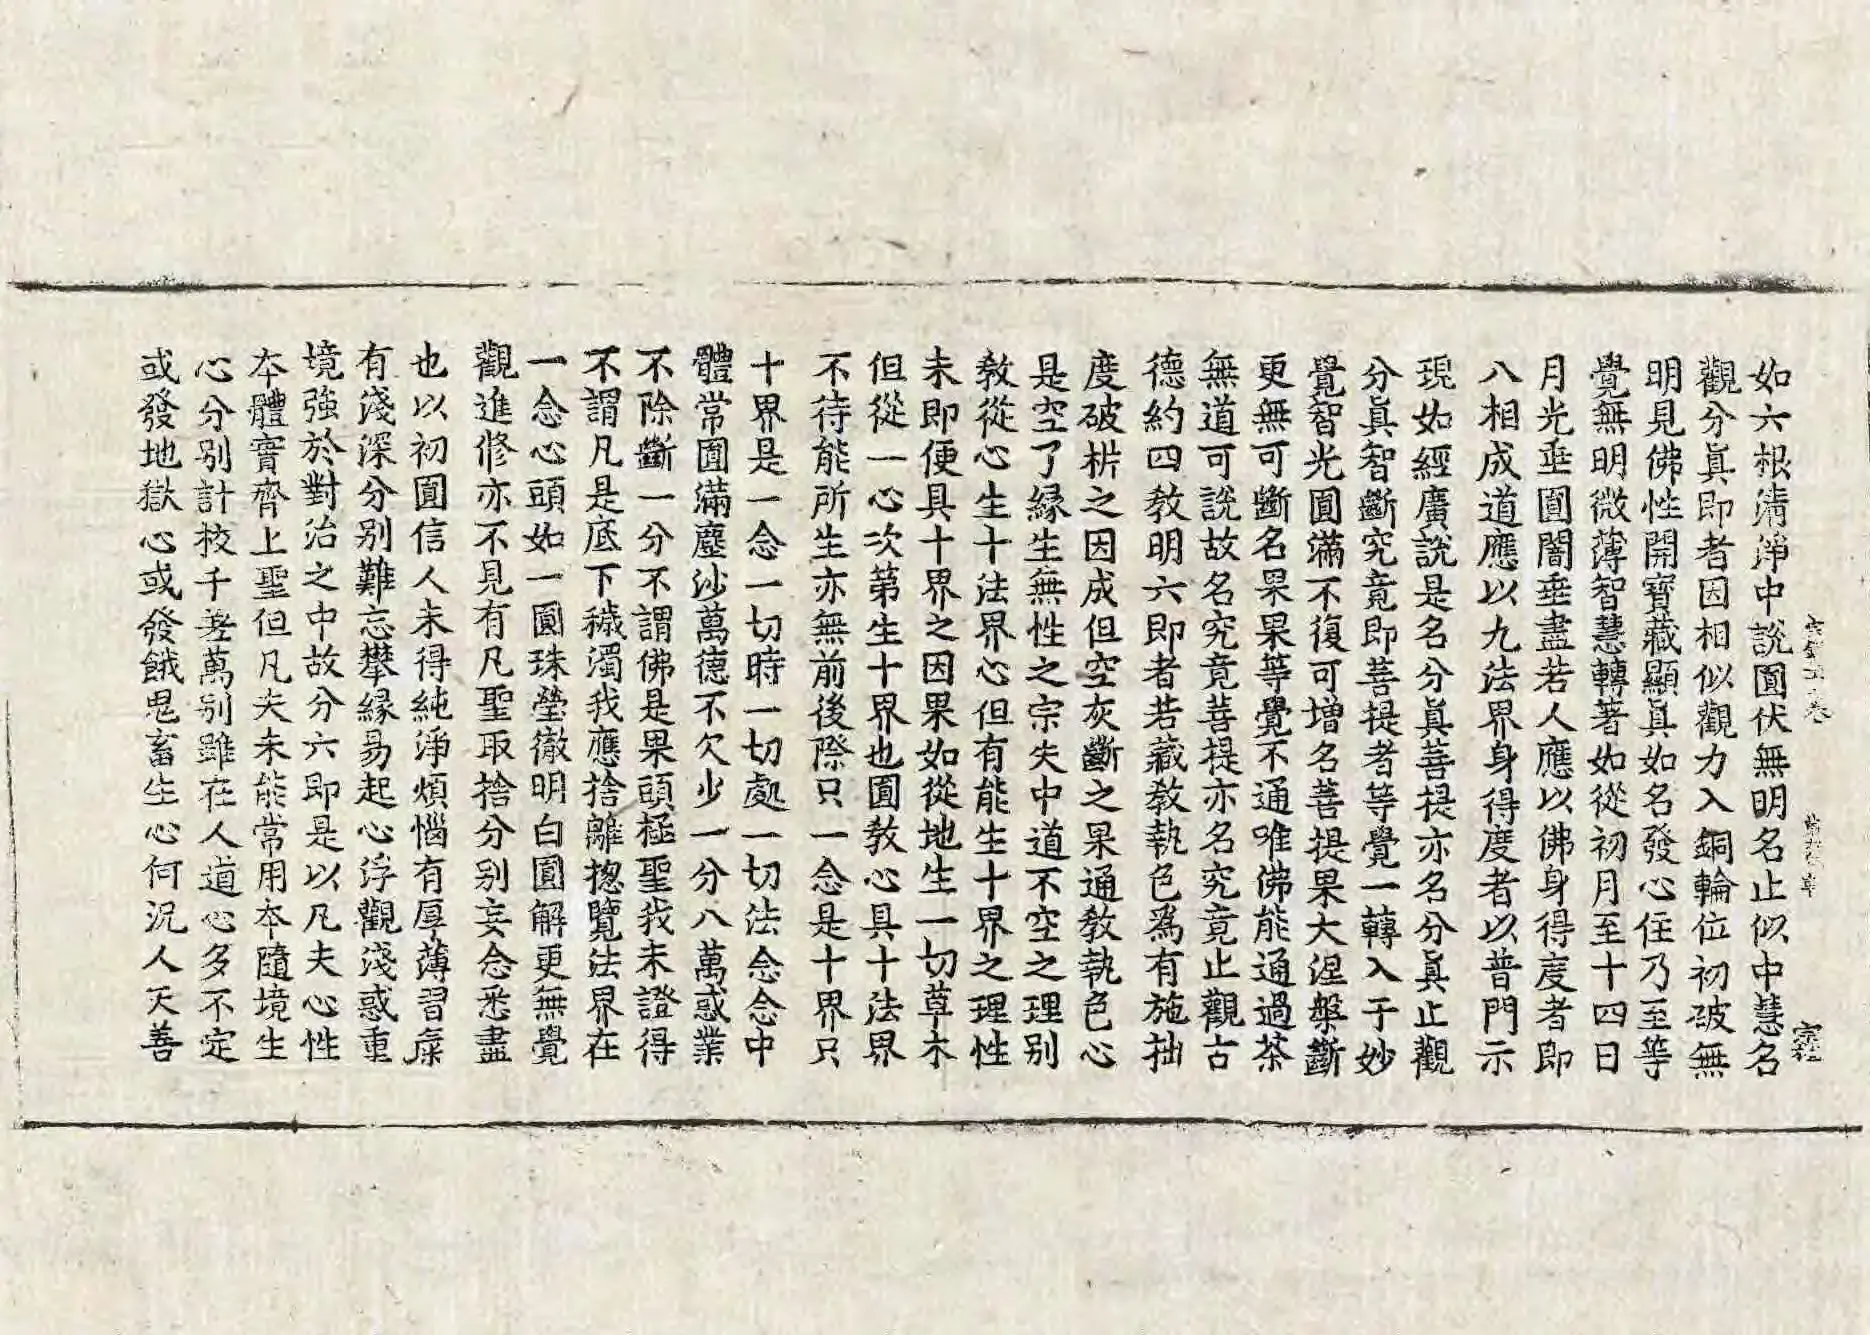 如六根清淨中說圓伏無明名止似中慧名
觀分眞即者因相似觀力入銅輪位初破無
明見佛性開寶藏顯眞如名發心住乃至等
覺無明微薄智慧轉著如從初月至十四日
月光垂圓闇垂盡若人應以佛身得度者即
八相成道應以九法界身得度者以普門示
現如經廣說是名分眞菩提亦名分眞止觀
分眞智斷究竟即菩提者等覺一轉入于妙
覺智光圓滿不復可增名菩提果大涅槃斷
更無可斷名果果等覺不通唯佛能通過茶
無道可說故名究竟菩提亦名究竟止觀古
德約四教明六即者若藏教執色爲有施拙
度破析之因成但空灰斷之果通教執色心
是空了緣生無性之宗失中道不空之理別
教從心生十法界心但有能生十界之理性
未即便具十界之因果如從地生一切草木
但從一心次第生十界也圓教心具十法界
不待能所生亦無前後際只一念是十界只
十界是一念一切時一切處一切法念念中
體常圓滿塵沙萬德不欠少一分八萬惑業
不除斷一分不謂佛是果頭極聖我未證得
不謂凡是底下穢濁我應捨離揔覽法界在
一念心頭如一圓珠瑩徹明白圓解更無覺
觀進修亦不見有凡聖取捨分别妄念悉盡
也以初圓信人未得純淨煩惱有厚薄習麁
有淺深分別難忘攀緣易起心浮觀淺惑重
境強於對治之中故分六即是以凡夫心性
本體實齊上聖但凡夫未能常用本隨境生
心分别計校千差萬别雖在人道心多不定
或發地獄心或發餓鬼畜生心何況人天善